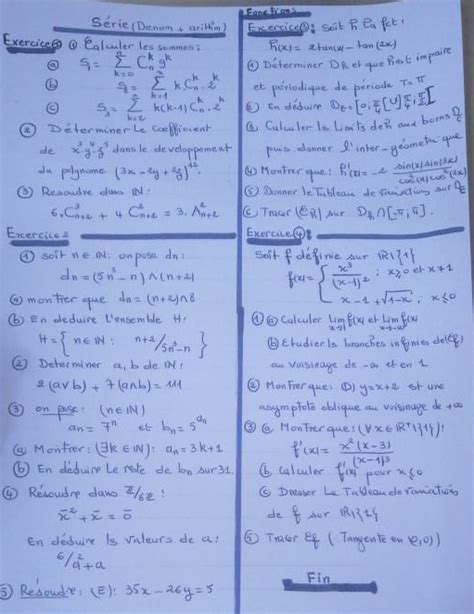 Série (Denom + arithm)
Exercice① ① Calculer les sommes:
ⓐ S₁ = Σ_{k=0}^{n} C_n^k 9^k
ⓑ S₂ = Σ_{k=1}^{n} k C_n^k . 2^k
ⓒ S₃ = Σ_{k=2}^{n} k(k-1) C_n^k . 2^k
② Déterminer le coefficient
de x³y⁴z⁵ dans le developpement
du polynome (3x - 2y + 2z)¹²
③ Resoudre dans IN:
6. C³_{n+2} + 4 C²_{n+2} = 3. A²_{n+2}
Exercice 2
① soit n ∈ IN: on pose dn:
dn = (5n³ - n) ∧ (n+2)
ⓐ montrer que dn = (n+2) ∧ 8
ⓑ En deduire l'ensemble H:
H = { n ∈ IN : n+2/5n³-n }
② Determiner a, b de IN:
2(a∨b) + 7(a∧b) = 111
③ on pose: (n ∈ IN)
an = 7ⁿ et bn = 5^{an}
ⓐ Montrer: (∃k ∈ IN): an = 3k+1
ⓑ En déduire le reste de bn sur 31.
④ Résoudre dans Z/6Z:
x̄² + x̄ = ō
En déduire les valeurs de a:
6/a²+a
⑤ Résoudre: (E): 35x - 26y = 5
Fonctions
Exercice③: Soit h la fct:
h(x) = 2tanx - tan(2x)
① Déterminer Dh et que h est impaire
et périodique de période T = π
② En déduire D_E = [0, π/4[ ∪ ]π/4, π/2[
③ Calculer les Limites de h aux borns D_E
puis donner l'inter-géometrique
④ Montrer que: h'(x) = -2 sin(x)sin(3x)/cos²(x)cos²(2x)
⑤ Donner le Tableau de variations sur D_E
⑥ Tracer (C_h) sur D_h ∩ [-π, π].
Exercice④:
Soit f définie sur IR\{1}
f(x) = { x³/(x-1)² ; x ≥ 0 et x ≠ 1
x - 1 + √(1-x) , x ≤ 0
① ⓐ Calculer lim f(x) x→1 et lim f(x) x→-∞
ⓑ Etudier ls branches infinies de (Cf)
au voisinage de -∞ et en 1
② Montrer que: (D) y = x+2 est une
asymptote oblique au voisinage de +∞
③ ⓐ Montrer que: (∀x ∈ IR⁺\{1}):
f'(x) = x²(x-3)/(x-1)³
ⓑ Calculer f'(x) pour x ≤ 0
ⓒ Dresser le Tableau de variations
de f sur IR\{1}
⑤ Tracer Cf (Tangente en (0,0))
Fin